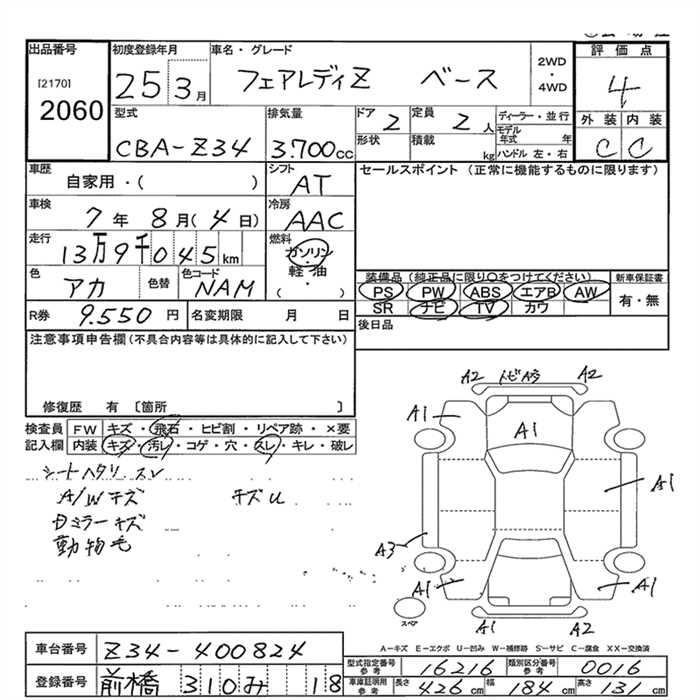 出品番号 初度登録年月 車名・グレード 2WD・4WD 評価点
[2170]
2060
25 3月 フェアレディZ ベース 4
型式 排気量 ドア 2 定員 2人 ディーラー・並行 外装 内装
CBA-Z34 3.700cc 形状 積載 kg モデル年式 年 C C
ハンドル 左・右
車歴 自家用・( ) シフト AT セールスポイント (正常に機能するものに限ります)
車検 7年 8月(4日) 冷房 AAC
走行 13万9千045km 燃料 ガソリン・軽・油・( )
色 アカ 色替 色コード NAM
装備品(純正品に限り○をつけてください) 新車保証書
PS PW ABS エアB AW 有・無
SR ナビ TV カワ
R券 9.550円 名変期限 月 日 後日品
注意事項申告欄(不具合内容等は具体的に記入して下さい)
修復歴 有 〔箇所 〕
検査員記入欄 FW キズ・飛石・ヒビ割・リペア跡・×要
内装 キズ・汚レ・コゲ・穴・スレ・キレ・破レ
シートヘタリ スレ
A/Wキズ キズU
Dミラーキズ
動物毛
A2 トビA多 A2
A1 A1
A1
A3
A1 A1
スペア A1 A2
A-キズ E-エクボ U-凹み W-補修跡 S-サビ C-腐食 XX-交換済
車台番号 Z34-400824
型式指定番号 参考 16216 類別区分番号 参考 0016
登録番号 前橋 310み 18
車庫証明用 参考 長さ 426cm 幅 184cm 高さ 131cm